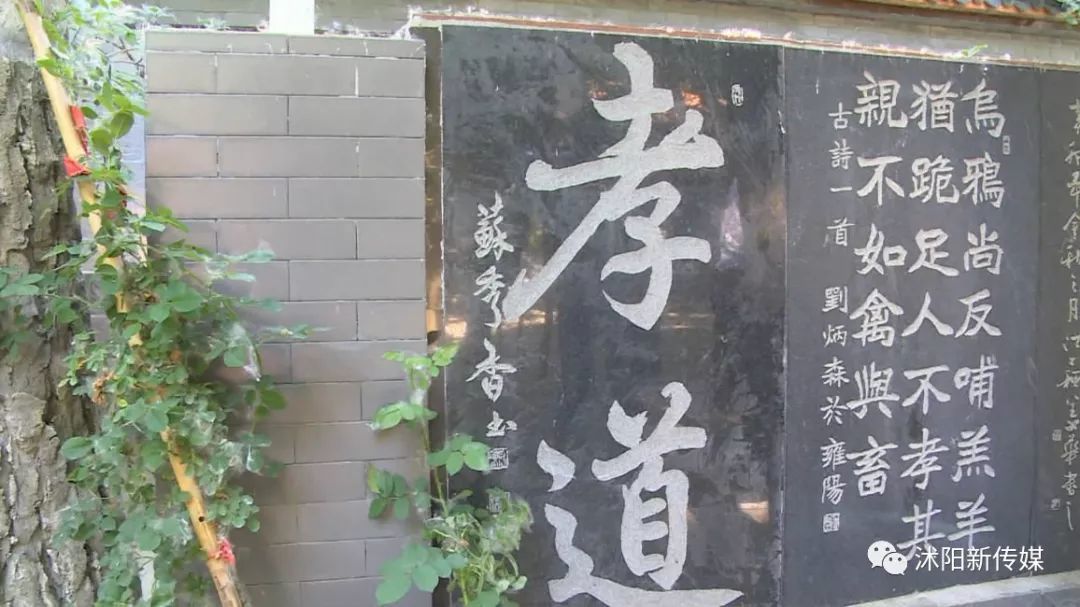 烏鴉尚反哺羔羊
猶跪足人不孝其
親不如禽與畜
古詩一首 劉炳森於雍陽
孝道
蘇秀香书
沭阳新传媒